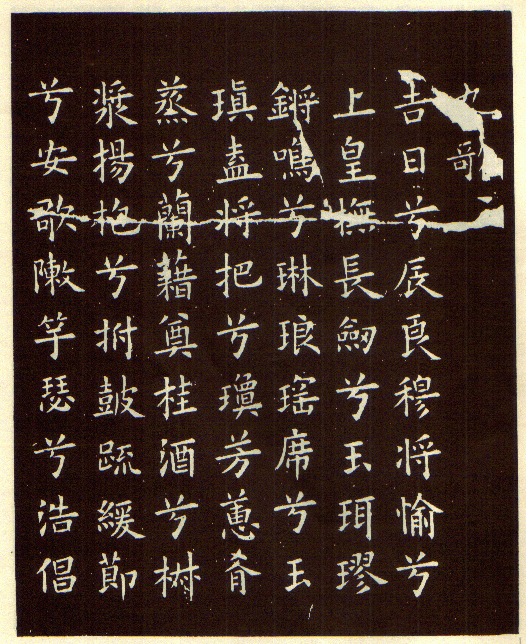 九歌
吉日兮辰良穆将愉兮
上皇撫長劒兮玉珥璆
鏘鳴兮琳琅瑤席兮玉
瑱盍将把兮瓊芳蕙肴
蒸兮蘭藉奠桂酒兮椒
漿揚枹兮拊鼓疏緩節
兮安歌陳竽瑟兮浩倡